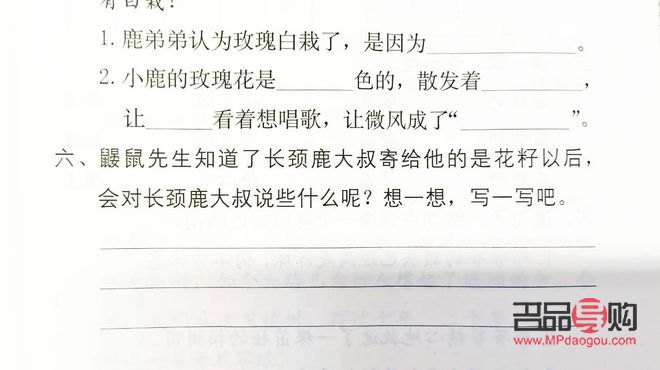 有白栽？
1. 鹿弟弟认为玫瑰白栽了，是因为____________。
2. 小鹿的玫瑰花是______色的，散发着________，
让_____看着想唱歌，让微风成了“________”。
六、鼹鼠先生知道了长颈鹿大叔寄给他的是花籽以后，
会对长颈鹿大叔说些什么呢？想一想，写一写吧。
名品导购
www.MPdaogou.com